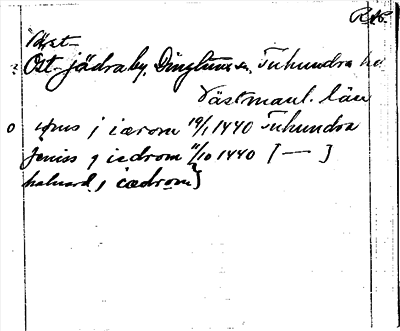 RAp.
Väst-
Öst-jädra by, Dingtuna sn, Tuhundra hd
Västmanl. län
jöns j iærom 19/1 1440 Tuhundra
jäniss j iedrom 11/10 1440 [ — ]
halvard j iædrom}